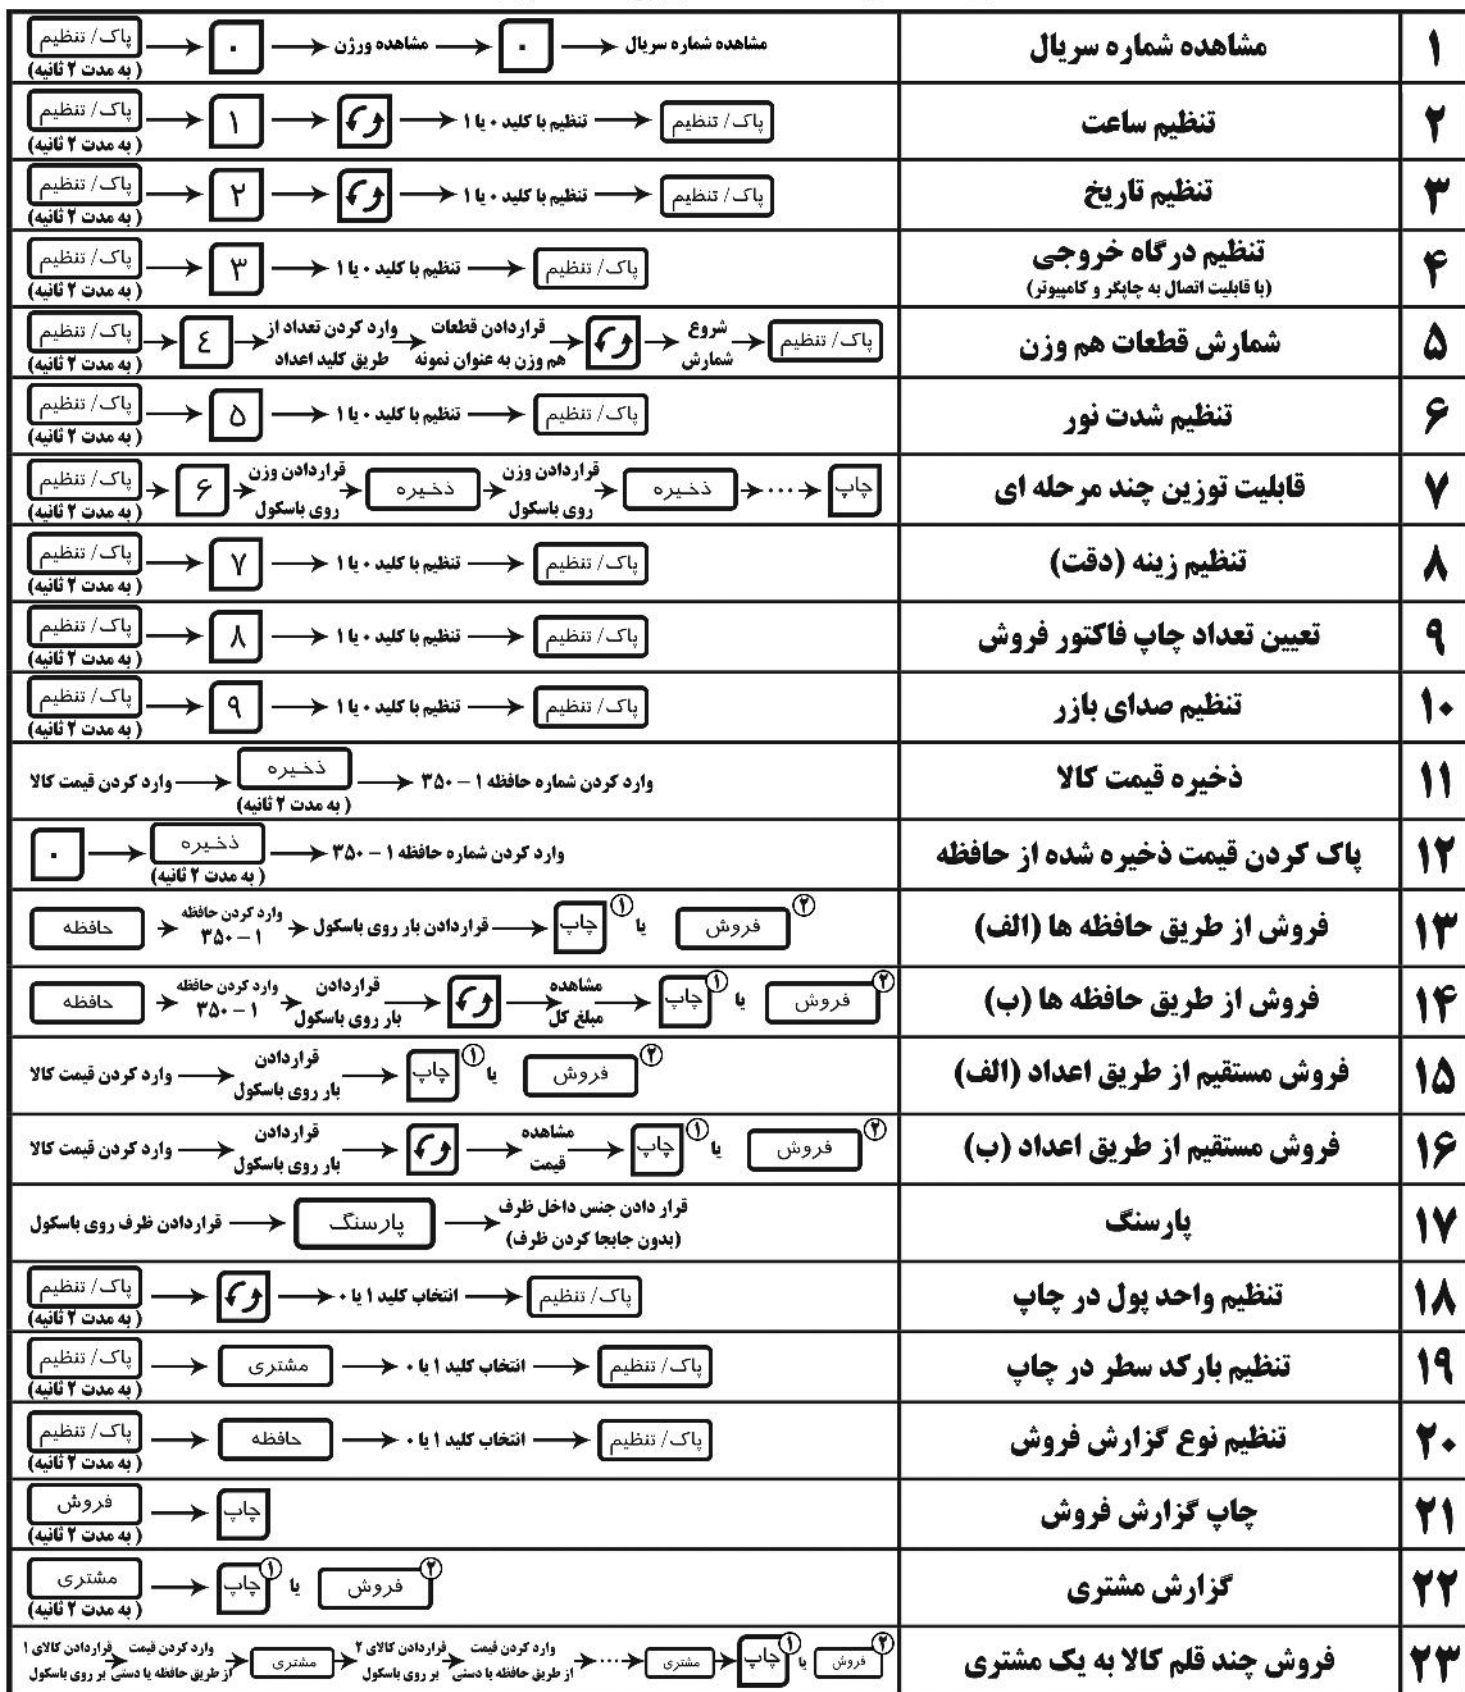 ۱ مشاهده شماره سریال
پاک/ تنظیم (به مدت ۲ ثانیه) ۰ مشاهده ورژن ۰ مشاهده شماره سریال
۲ تنظیم ساعت
پاک/ تنظیم (به مدت ۲ ثانیه) ۱ تنظیم با کلید ۰ یا ۱ پاک/ تنظیم
۳ تنظیم تاریخ
پاک/ تنظیم (به مدت ۲ ثانیه) ۲ تنظیم با کلید ۰ یا ۱ پاک/ تنظیم
۴ تنظیم درگاه خروجی
(با قابلیت اتصال به چاپگر و کامپیوتر)
پاک/ تنظیم (به مدت ۲ ثانیه) ۳ تنظیم با کلید ۰ یا ۱ پاک/ تنظیم
۵ شمارش قطعات هم وزن
پاک/ تنظیم (به مدت ۲ ثانیه) ٤ وارد کردن تعداد از طریق کلید اعداد قراردادن قطعات هم وزن به عنوان نمونه شروع شمارش پاک/ تنظیم
۶ تنظیم شدت نور
پاک/ تنظیم (به مدت ۲ ثانیه) ۵ تنظیم با کلید ۰ یا ۱ پاک/ تنظیم
۷ قابلیت توزین چند مرحله ای
پاک/ تنظیم (به مدت ۲ ثانیه) ۶ قراردادن وزن روی باسکول ذخیره قراردادن وزن روی باسکول ذخیره ... چاپ
۸ تنظیم زینه (دقت)
پاک/ تنظیم (به مدت ۲ ثانیه) ۷ تنظیم با کلید ۰ یا ۱ پاک/ تنظیم
۹ تعیین تعداد چاپ فاکتور فروش
پاک/ تنظیم (به مدت ۲ ثانیه) ۸ تنظیم با کلید ۰ یا ۱ پاک/ تنظیم
۱۰ تنظیم صدای بازر
پاک/ تنظیم (به مدت ۲ ثانیه) ۹ تنظیم با کلید ۰ یا ۱ پاک/ تنظیم
۱۱ ذخیره قیمت کالا
وارد کردن قیمت کالا ذخیره (به مدت ۲ ثانیه) وارد کردن شماره حافظه ۱ – ۳۵۰
۱۲ پاک کردن قیمت ذخیره شده از حافظه
۰ ذخیره (به مدت ۲ ثانیه) وارد کردن شماره حافظه ۱ – ۳۵۰
۱۳ فروش از طریق حافظه ها (الف)
حافظه وارد کردن حافظه ۱ – ۳۵۰ قراردادن بار روی باسکول چاپ ① یا فروش ②
۱۴ فروش از طریق حافظه ها (ب)
حافظه وارد کردن حافظه ۱ – ۳۵۰ قراردادن بار روی باسکول مشاهده مبلغ کل چاپ ① یا فروش ②
۱۵ فروش مستقیم از طریق اعداد (الف)
وارد کردن قیمت کالا قراردادن بار روی باسکول چاپ ① یا فروش ②
۱۶ فروش مستقیم از طریق اعداد (ب)
وارد کردن قیمت کالا قراردادن بار روی باسکول مشاهده قیمت چاپ ① یا فروش ②
۱۷ پارسنگ
قراردادن ظرف روی باسکول پارسنگ قرار دادن جنس داخل ظرف (بدون جابجا کردن ظرف)
۱۸ تنظیم واحد پول در چاپ
پاک/ تنظیم (به مدت ۲ ثانیه) انتخاب کلید ۱ یا ۰ پاک/ تنظیم
۱۹ تنظیم بارکد سطر در چاپ
پاک/ تنظیم (به مدت ۲ ثانیه) مشتری انتخاب کلید ۱ یا ۰ پاک/ تنظیم
۲۰ تنظیم نوع گزارش فروش
پاک/ تنظیم (به مدت ۲ ثانیه) حافظه انتخاب کلید ۱ یا ۰ پاک/ تنظیم
۲۱ چاپ گزارش فروش
فروش (به مدت ۲ ثانیه) چاپ
۲۲ گزارش مشتری
مشتری (به مدت ۲ ثانیه) چاپ ① یا فروش ②
۲۳ فروش چند قلم کالا به یک مشتری
قراردادن کالای ۱ بر روی باسکول وارد کردن قیمت از طریق حافظه یا دستی مشتری قراردادن کالای ۲ بر روی باسکول وارد کردن قیمت از طریق حافظه یا دستی ... مشتری چاپ ① یا فروش ②